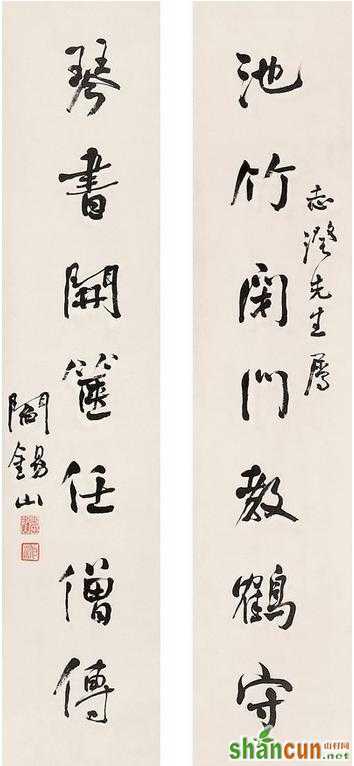 志澄先生屬
池竹閉門教鶴守
琴書開篋任僧傳
閻錫山
shancun
山村网
.net